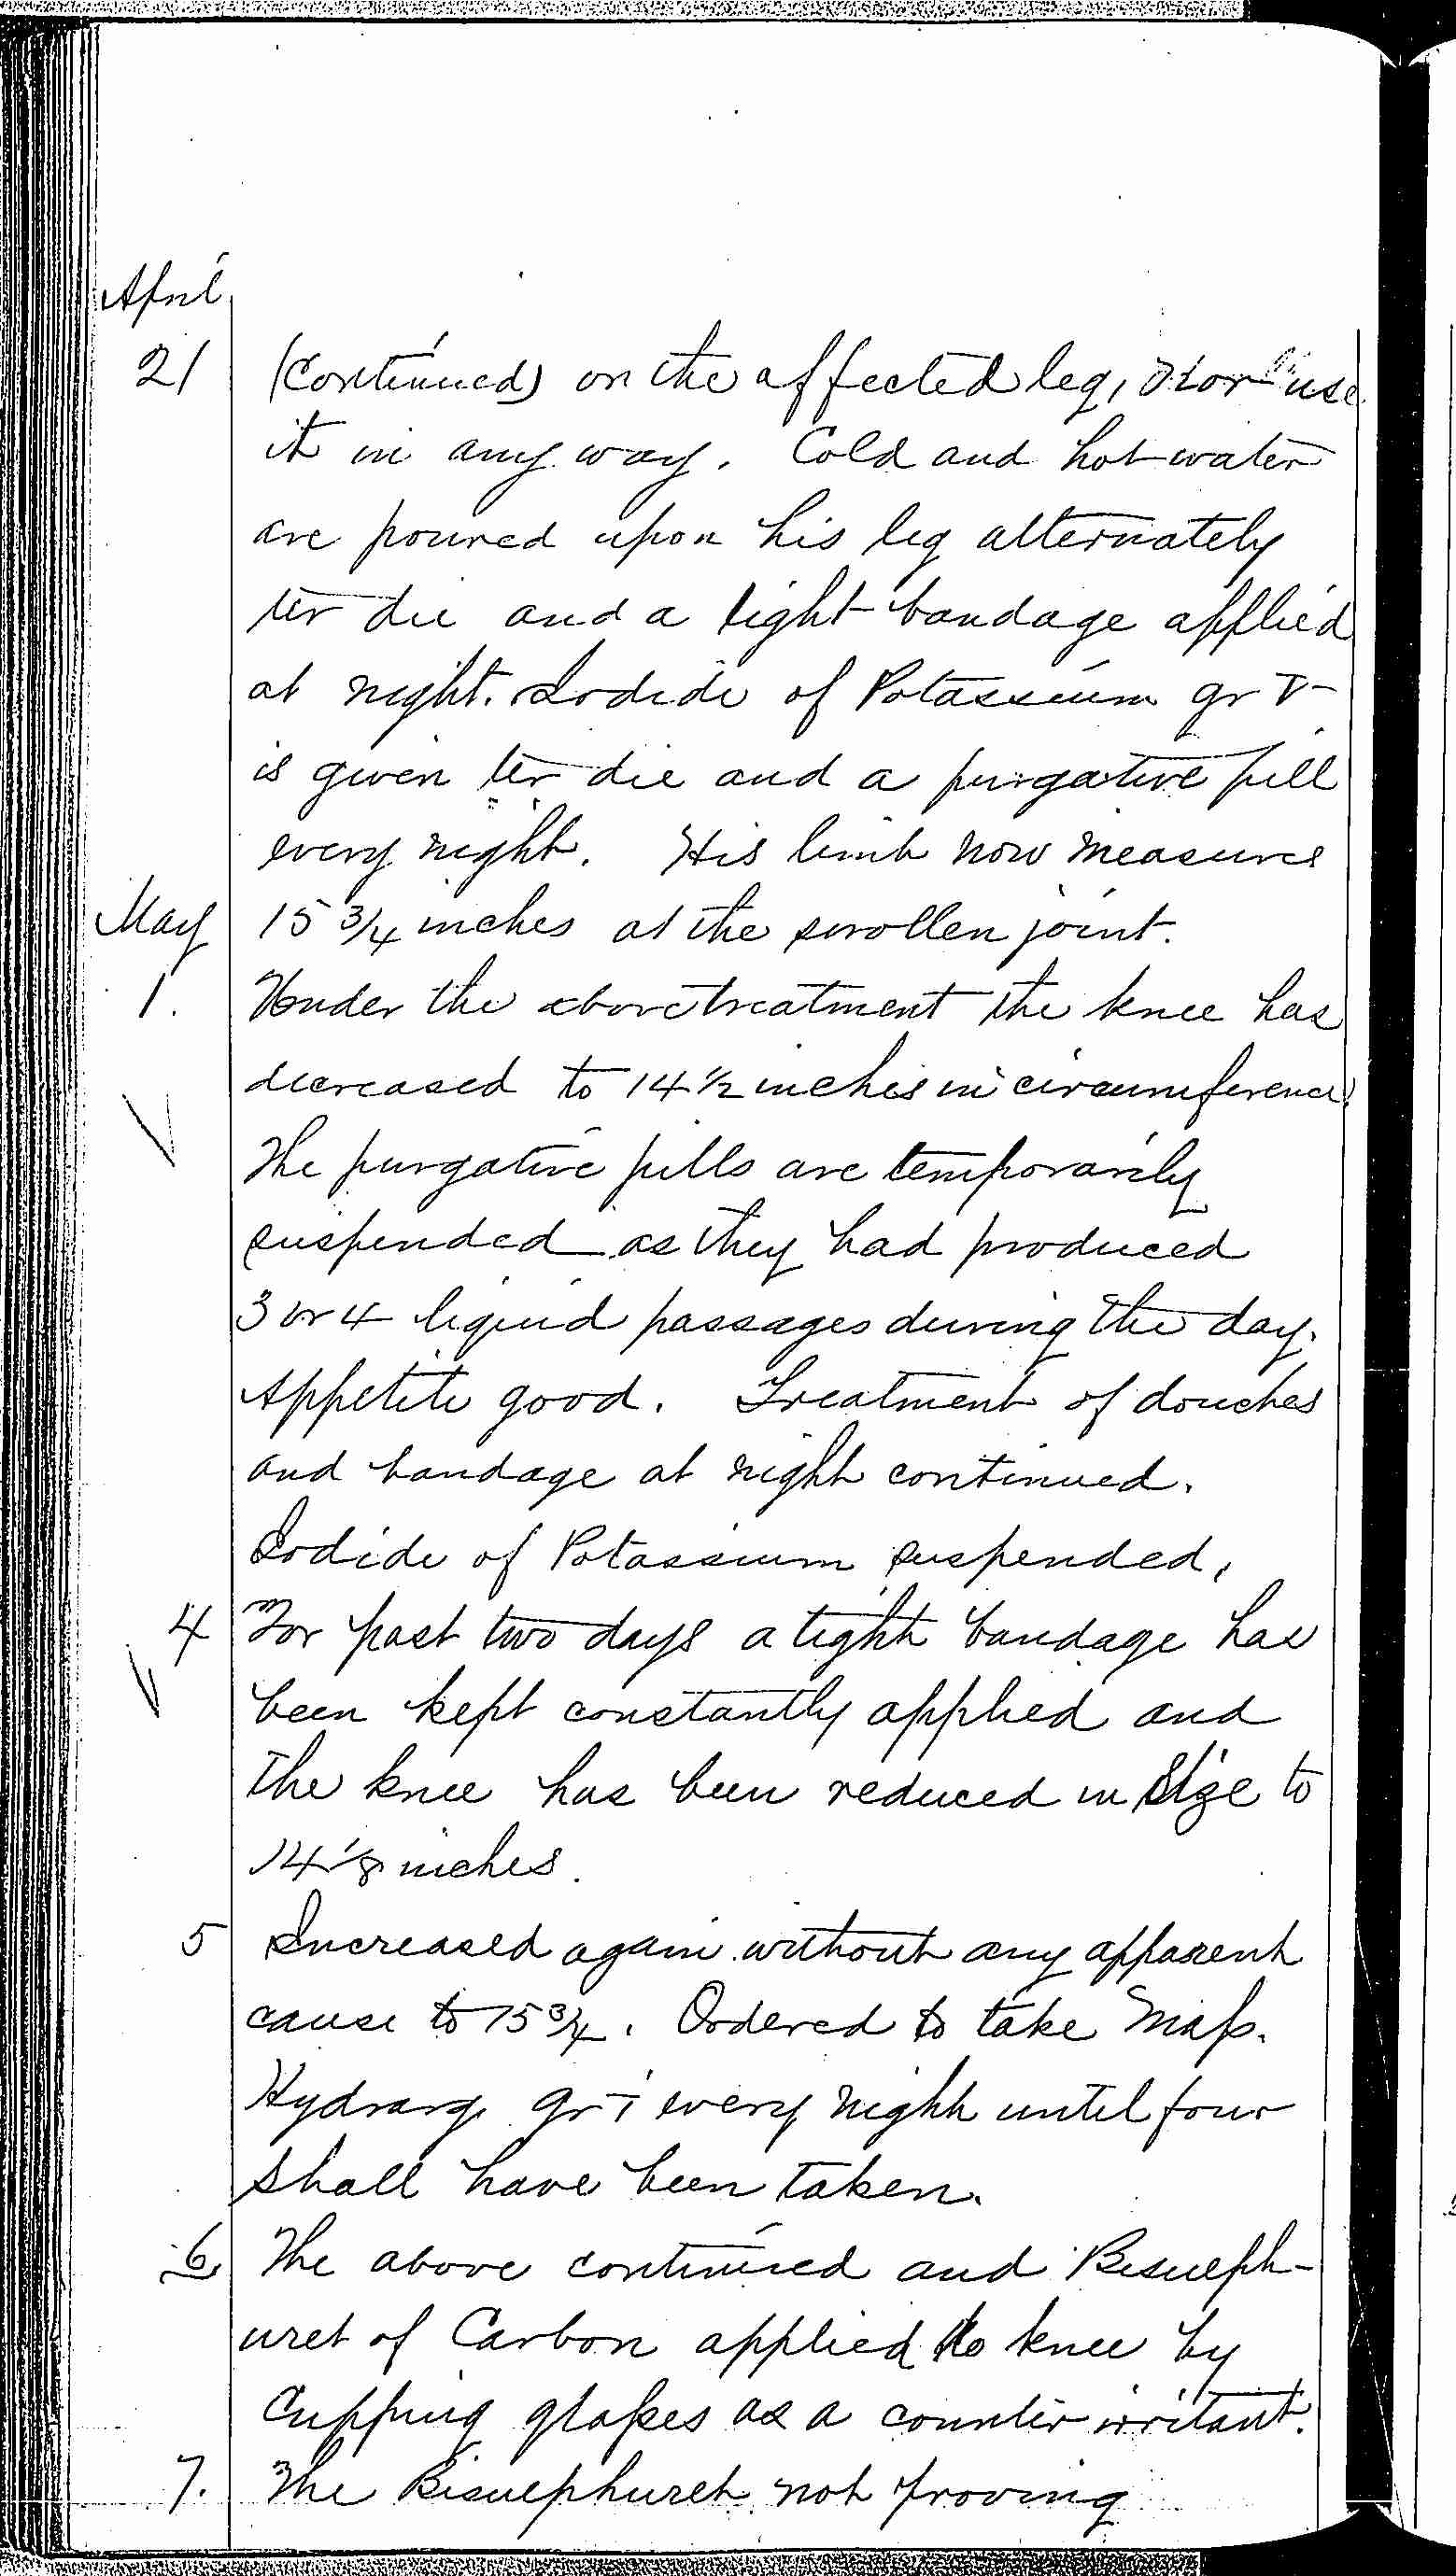 April
21 (Continued) on the affected leg, nor use
it in any way. Cold and hot water
are poured upon his leg alternately
ter die and a tight bandage applied
at night. Iodide of Potassium gr V
is given ter die and a purgative pill
every night. His limb now measures
May 15 3/4 inches at the swollen joint.
1. Under the above treatment the knee has
decreased to 14 1/2 inches in circumference.
The purgative pills are temporarily
suspended as they had produced
3 or 4 liquid passages during the day.
Appetite good. Treatment of douches
and bandage at night continued.
Iodide of Potassium suspended,
4 For past two days a tight bandage has
been kept constantly applied and
the knee has been reduced in size to
14 1/8 inches.
5 Increased again without any apparent
cause to 15 3/4. Ordered to take Mass.
Hydrarg. gr i every night until four
shall have been taken.
6 The above continued and Bisulph-
uret of Carbon applied to knee by
Cupping glasses as a counter irritant.
7. The Bisulphuret not proving